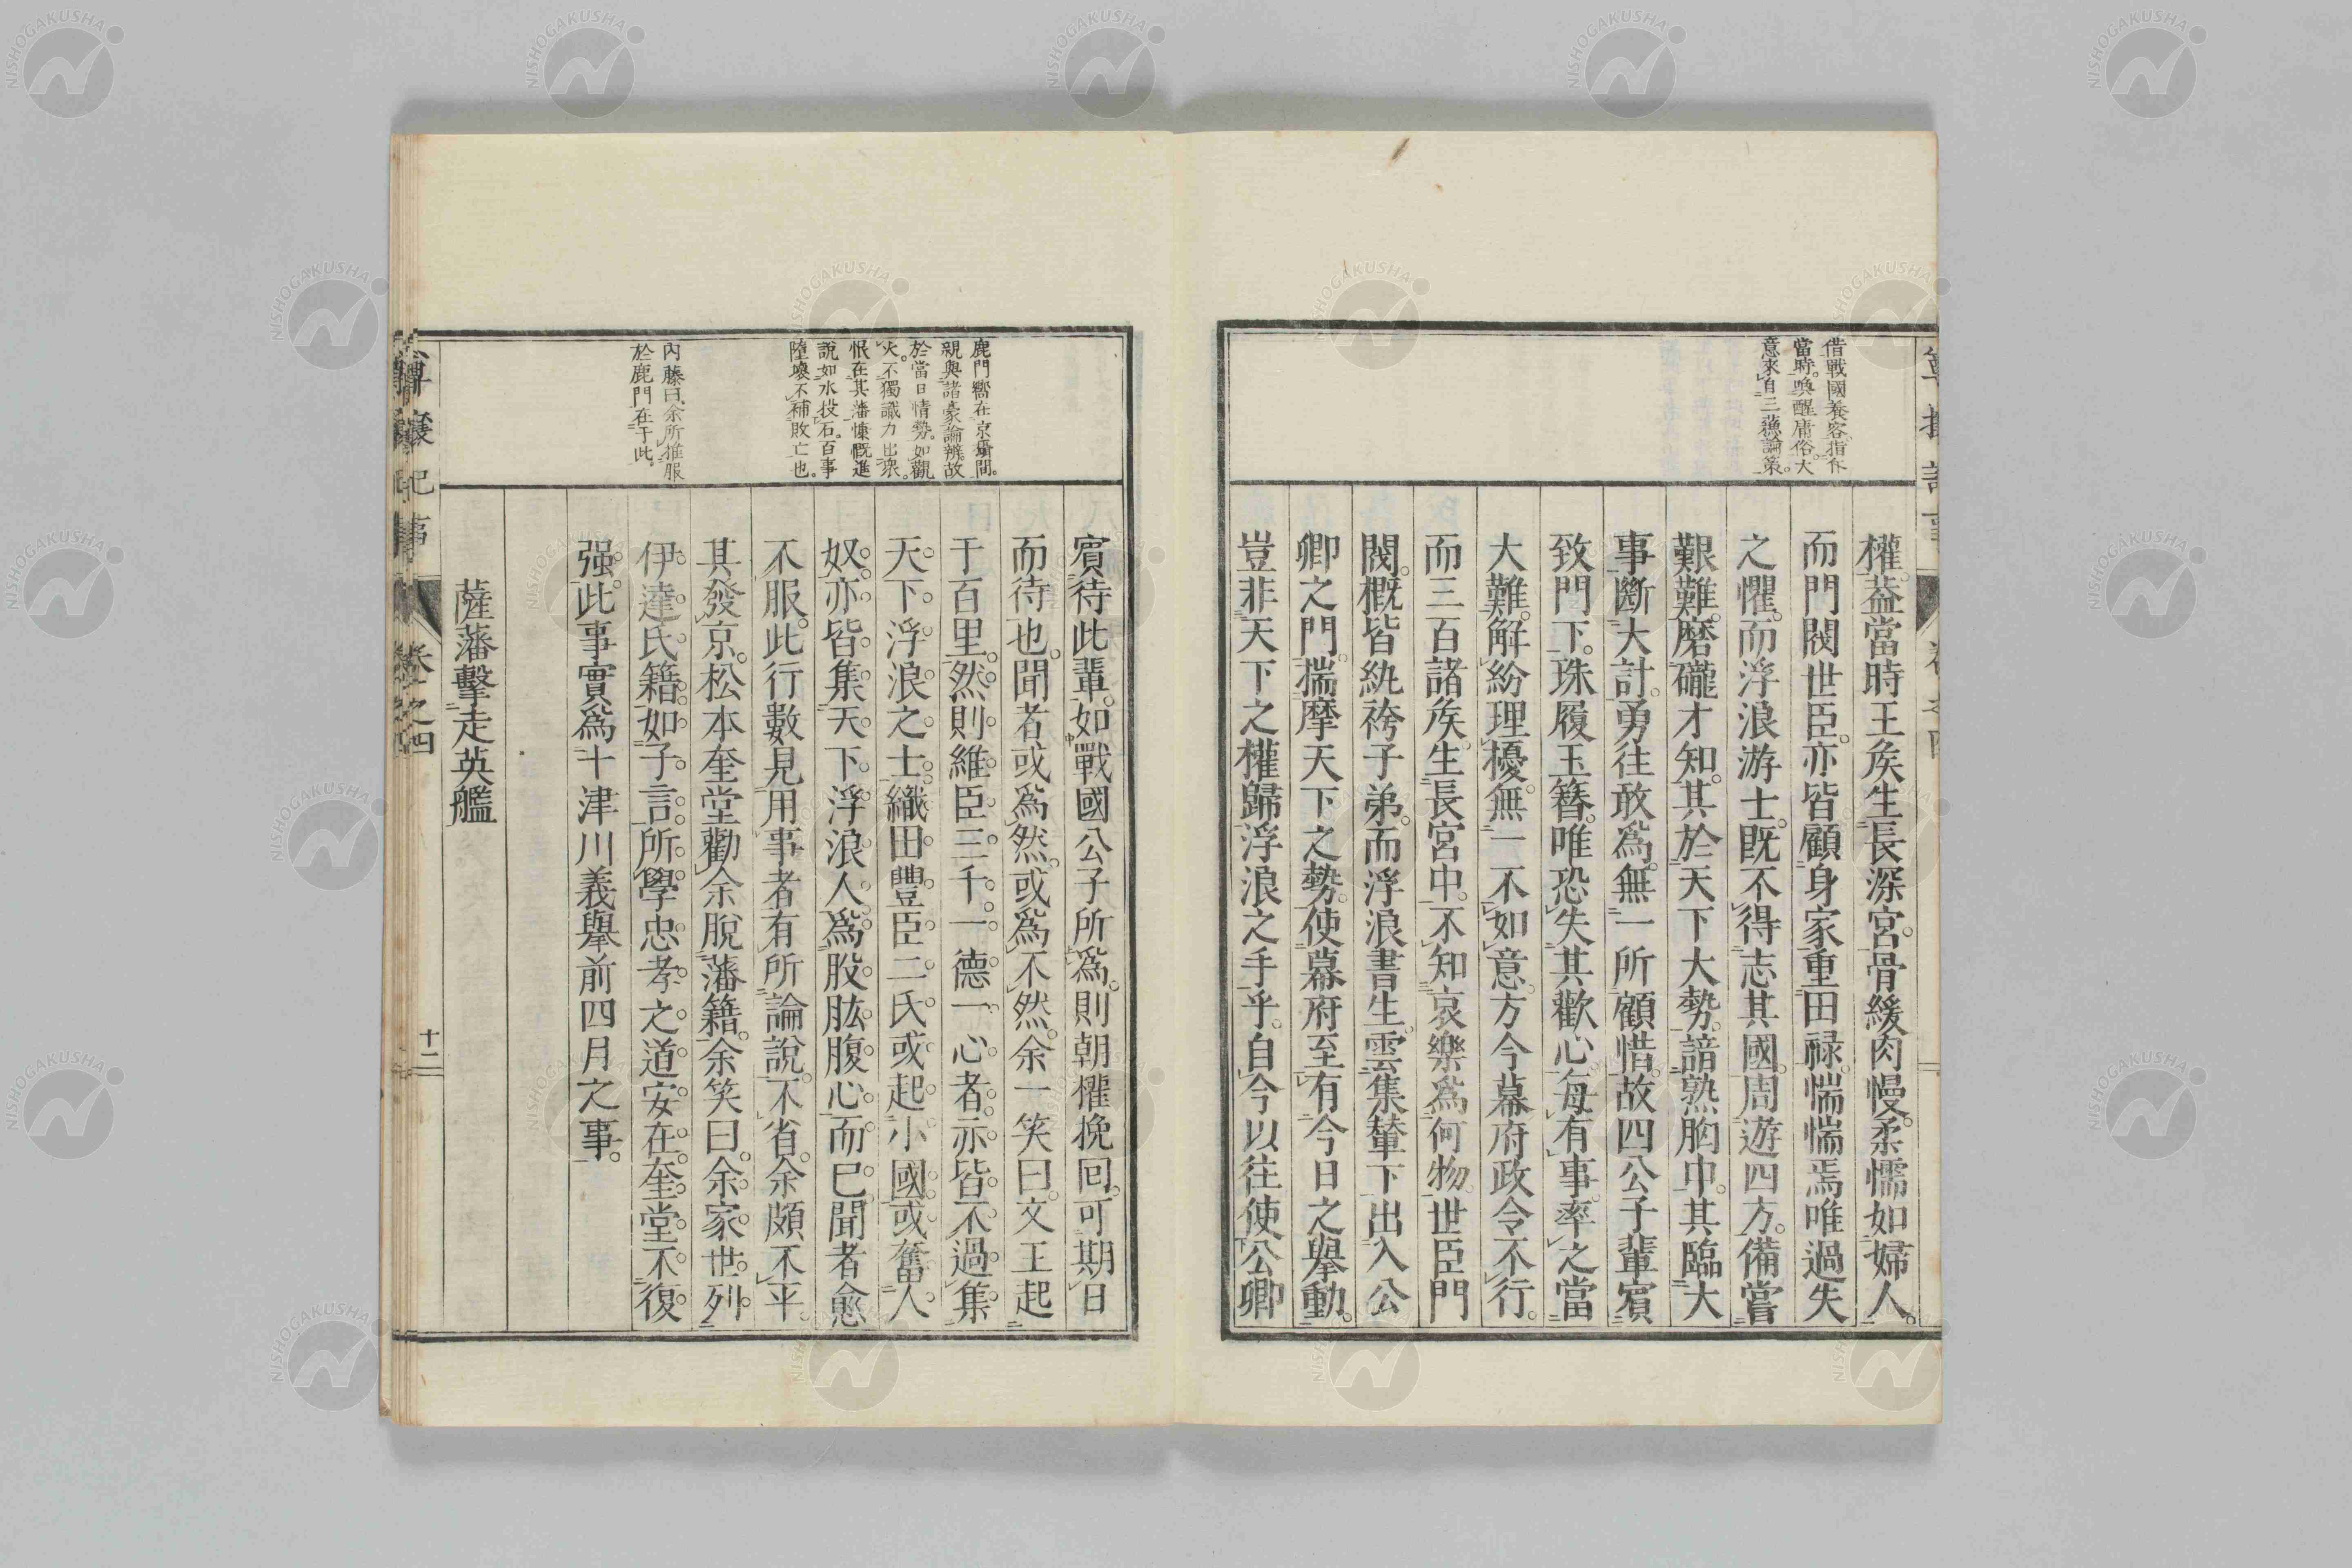 借戰國養客指斥
當時喚醒庸俗大
意來自三蘇論策
權。蓋當時王矦生長深宮。骨緩肉慢。柔懦如婦人。
而門閥世臣。亦皆顧身家重田祿。惴惴焉唯過失
之懼。而浮浪游士。既不得志其國。周遊四方。備嘗
艱難。磨礲才知。其於天下大勢。諳熟胸中。其臨大
事斷大計。勇往敢爲。無一所顧惜。故四公子輩賓
致門下。珠履玉簪。唯恐失其歡心。每有事。率之當
大難。解紛理擾。無一不如意。方今幕府政令不行。
而三百諸矦。生長宮中。不知哀樂爲何物。世臣門
閥。概皆紈袴子弟。而浮浪書生。雲集輦下。出入公
卿之門。揣摩天下之勢。使幕府至有今日之擧動。
豈非天下之權歸浮浪之手乎。自今以往使公卿
鹿門嚮在京攝間。
親與諸豪論辨。故
於當日情勢。如觀
火。不獨識力出衆。
恨在其藩慷慨進
說如水投石。百事
墮壞不補敗亡也。
內藤曰余所推服
於鹿門在于此。
賓待此輩。如戰國公子所爲。則朝權挽回。可期日
而待也。聞者或爲然。或爲不然。余一笑曰。文王起
于百里。然則維臣三千。一德一心者。亦皆不過集
天下浮浪之士。織田豐臣二氏。或起小國。或奮人
奴。亦皆集天下浮浪人。爲股肱腹心而已。聞者愈
不服。此行數見用事者有所論說。不省。余頗不平
其發京。松本奎堂勸余脫藩籍。余笑曰。余家世列
伊達氏籍。如子言。所學忠孝之道安在。奎堂不復
强。此事實爲十津川義擧前四月之事。
薩藩擊走英艦
尊攘紀事
卷之四
十二